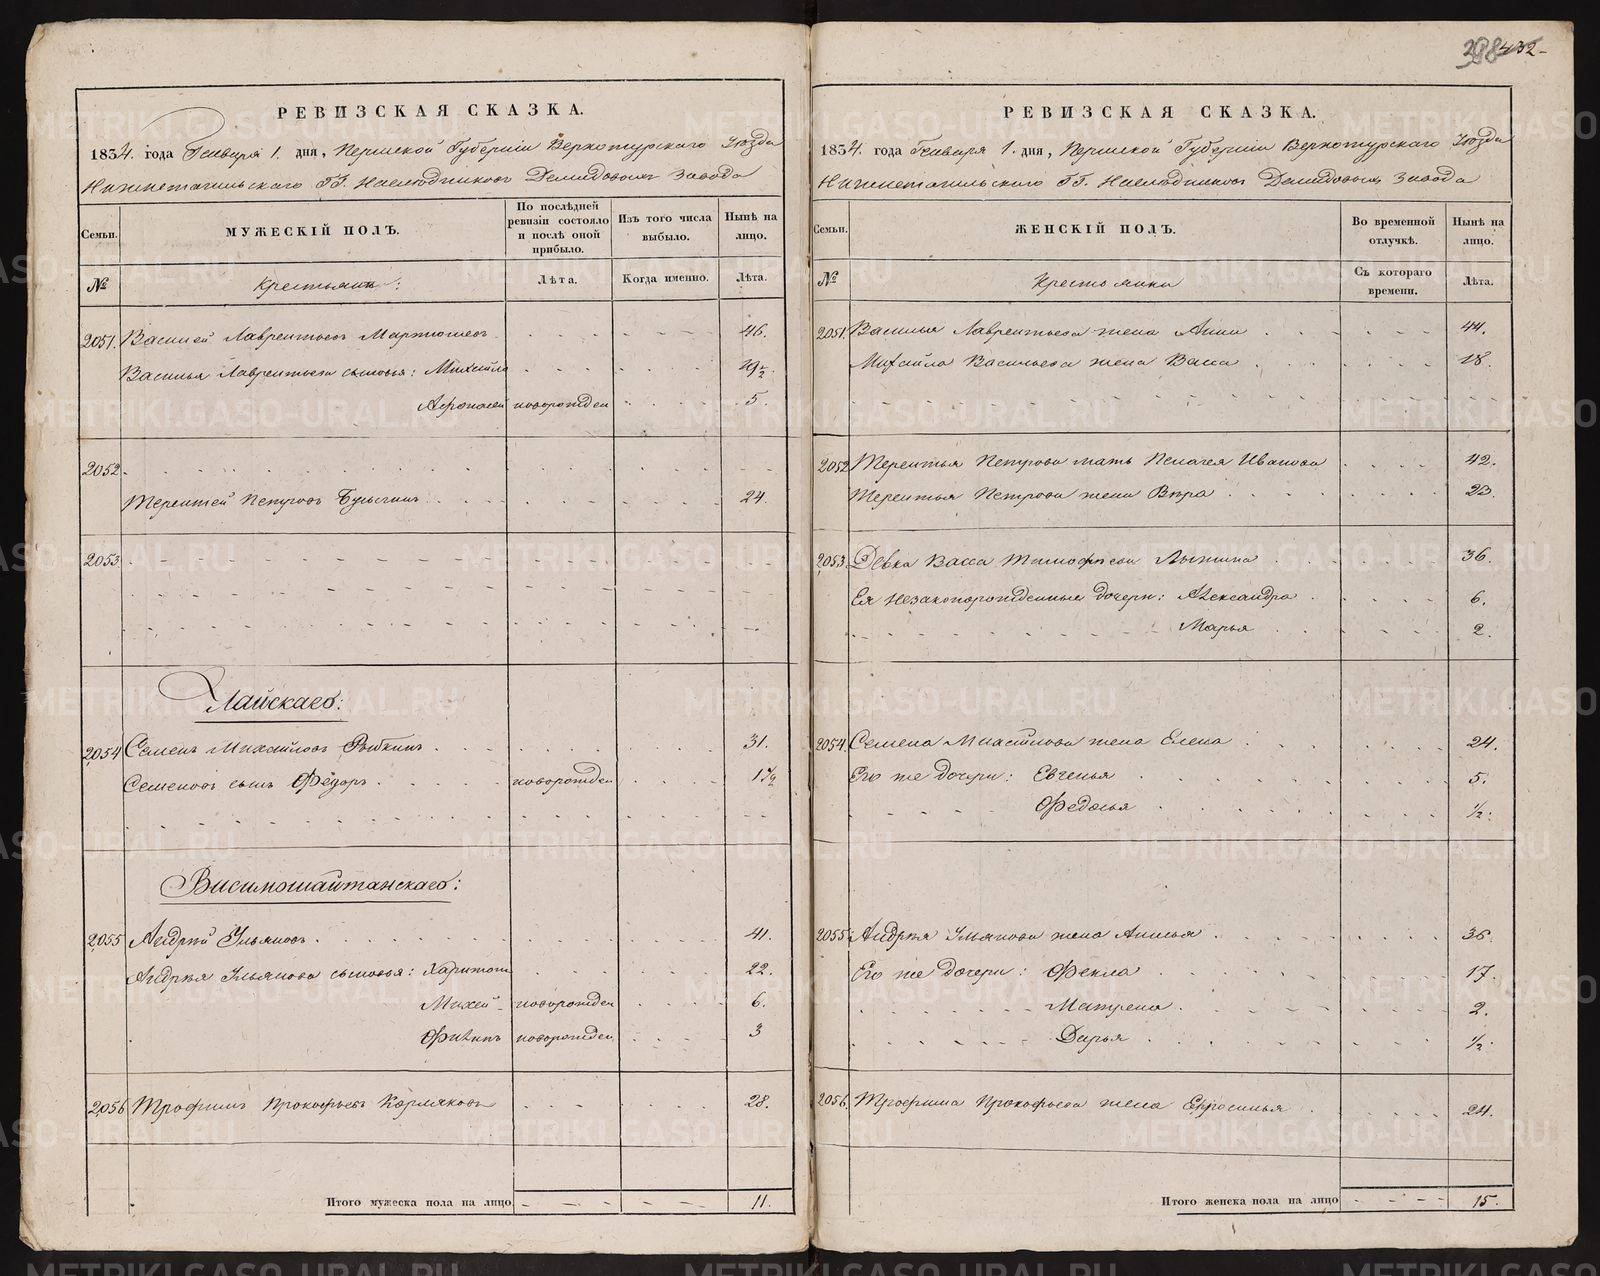 432
РЕВИЗСКАЯ СКАЗКА.
1834. года Генваря 1. дня, Пермской Губерніи Верхотурскаго Уѣзда
Нижнетагильскаго ГГ. Наслѣдниковъ Демидовыхъ завода
Семьи.
МУЖЕСКІЙ ПОЛЪ.
По послѣдней ревизіи состояло и послѣ оной прибыло.
Изъ того числа выбыло.
Нынѣ на лицо.
№
Крестьянъ:
Лѣта.
Когда именно.
Лѣта.
2051. Василей Лаврентьевъ Мартюшевъ 46.
Василья Лаврентьева сыновья: Михайло 19½.
Афонасей новорожден 5.
2052.
Терентей Петровъ 24.
2053.
Лайскаго:
2054 Семенъ Михайловъ Рыбкинъ 31.
Семеновъ сынъ Фёдоръ новорожден 1½
Висимошайтанскаго:
2055 Андрѣй Ульяновъ 41.
Андрѣя Ульянова сыновья: Харитонъ 22.
Михей новорожден 6.
Филипъ новорожден 3
2056 Трофимъ Прокофьевъ Корляковъ 28.
Итого мужеска пола на лицо 11.
РЕВИЗСКАЯ СКАЗКА.
1834. года Генваря 1. дня, Пермской Губерніи Верхотурскаго Уѣзда
Нижнетагильскаго ГГ. Наслѣдниковъ Демидовыхъ завода
Семьи.
ЖЕНСКІЙ ПОЛЪ.
Во временной отлучкѣ.
Нынѣ на лицо.
№
Крестьянки
Съ котораго времени.
Лѣта.
2051. Василья Лаврентьева жена Анна 44.
Михайла Васильева жена Васса 18.
2052 Терентья Петрова мать Пелагея Иванова 42.
Терентья Петрова жена Вѣра 23.
2053 Дѣвка Васса Тимофѣева 36.
Ея незаконорожденные дочери: Александра 6.
Марья 2.
2054. Семена Михайлова жена Елена 24.
Его же дочери: Евгенья 5.
Федосья ½.
2055 Андрѣя Ульянова жена Анисья 36.
Его же дочери: Фекла 17.
Матрена 2.
Дарья ½.
2056. Трофима Прокофьева жена Ефросинья 24.
Итого женска пола на лицо 15.
METRIKI.GASO-URAL.RU